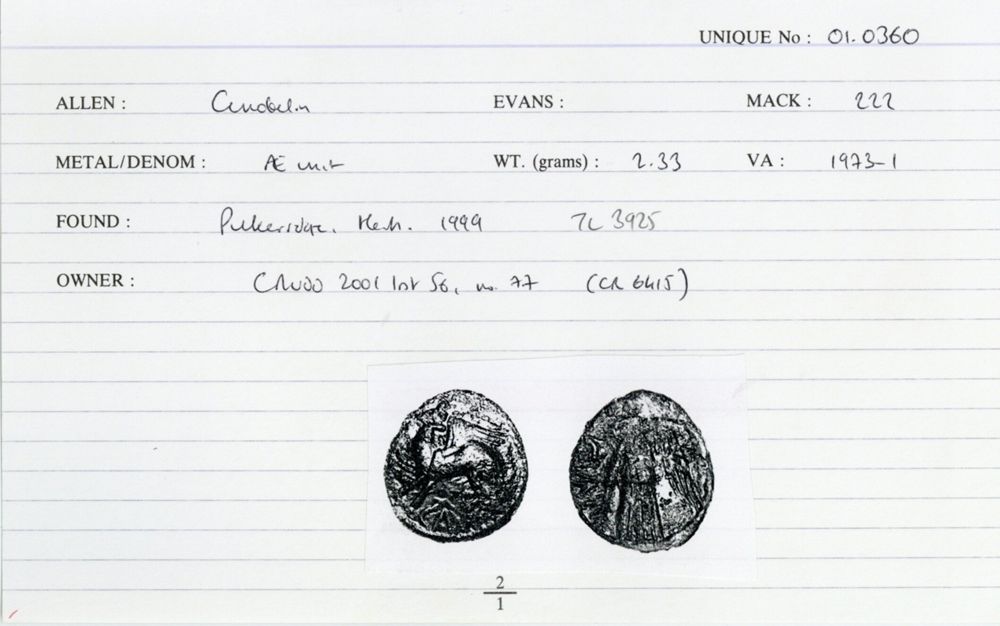 UNIQUE No : 01.0360
ALLEN : Cunobelin EVANS : MACK : 222
METAL/DENOM : Æ unit WT. (grams) : 2.33 VA : 1973-1
FOUND : Puckeridge, Herts. 1999 TL 3925
OWNER : 2001 List 56, no. 77 (CR 6415)
2
1